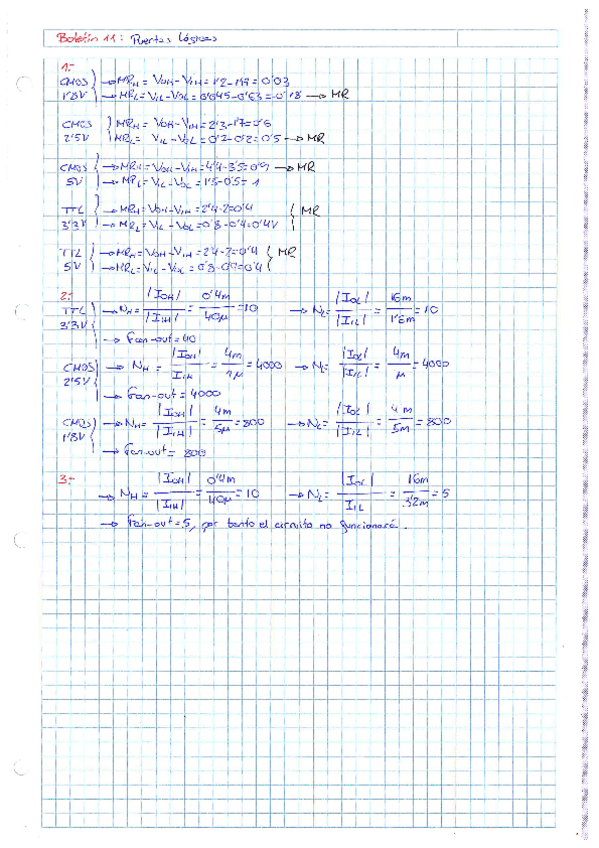 Boletín 11: Puertas Lógicas
1.-
CMOS 1'8V → MRH = VOH - VIH = 1'2 - 1'17 = 0'03
→ MRL = VIL - VOL = 0'645 - 0'63 = -0'18 → MR
CMOS 2'5V MRH = VOH - VIH = 2'3 - 1'7 = 0'6
MRL = VIL - VOL = 0'7 - 0'2 = 0'5 → MR
CMOS 5V → MRH = VOH - VIH = 4'4 - 3'5 = 0'9 → MR
→ MRL = VIL - VOL = 1'5 - 0'5 = 1
TTL 3'3V → MRH = VOH - VIH = 2'4 - 2 = 0'4
→ MRL = VIL - VOL = 0'8 - 0'4 = 0'4V } MR
TTL 5V → MRH = VOH - VIH = 2'4 - 2 = 0'4 } MR
→ MRL = VIL - VOL = 0'8 - = 0'4
2.-
TTL 3'3V → NH = |IOH| / |IIH| = 0'4m / 40μ = 10 → NL = |IOL| / |IIL| = 16m / 1'6m = 10
→ Fan-out = 10
CMOS 2'5V → NH = |IOH| / IIH = 4m / 1μ = 4000 → NL = |IOL| / |IIL| = 4m / μ = 4000
→ Fan-out = 4000
CMOS 1'8V → NH = |IOH| / |IIH| = 4m / 5μ = 800 → NL = |IOL| / |IIL| = 4m / 5m = 800
→ Fan-out = 800
3.-
→ NH = |IOH| / |IIH| = 0'4m / 40μ = 10 → NL = |IOL| / IIL = 16m / 3'2m = 5
→ Fan-out = 5, por tanto el circuito no funcionará.